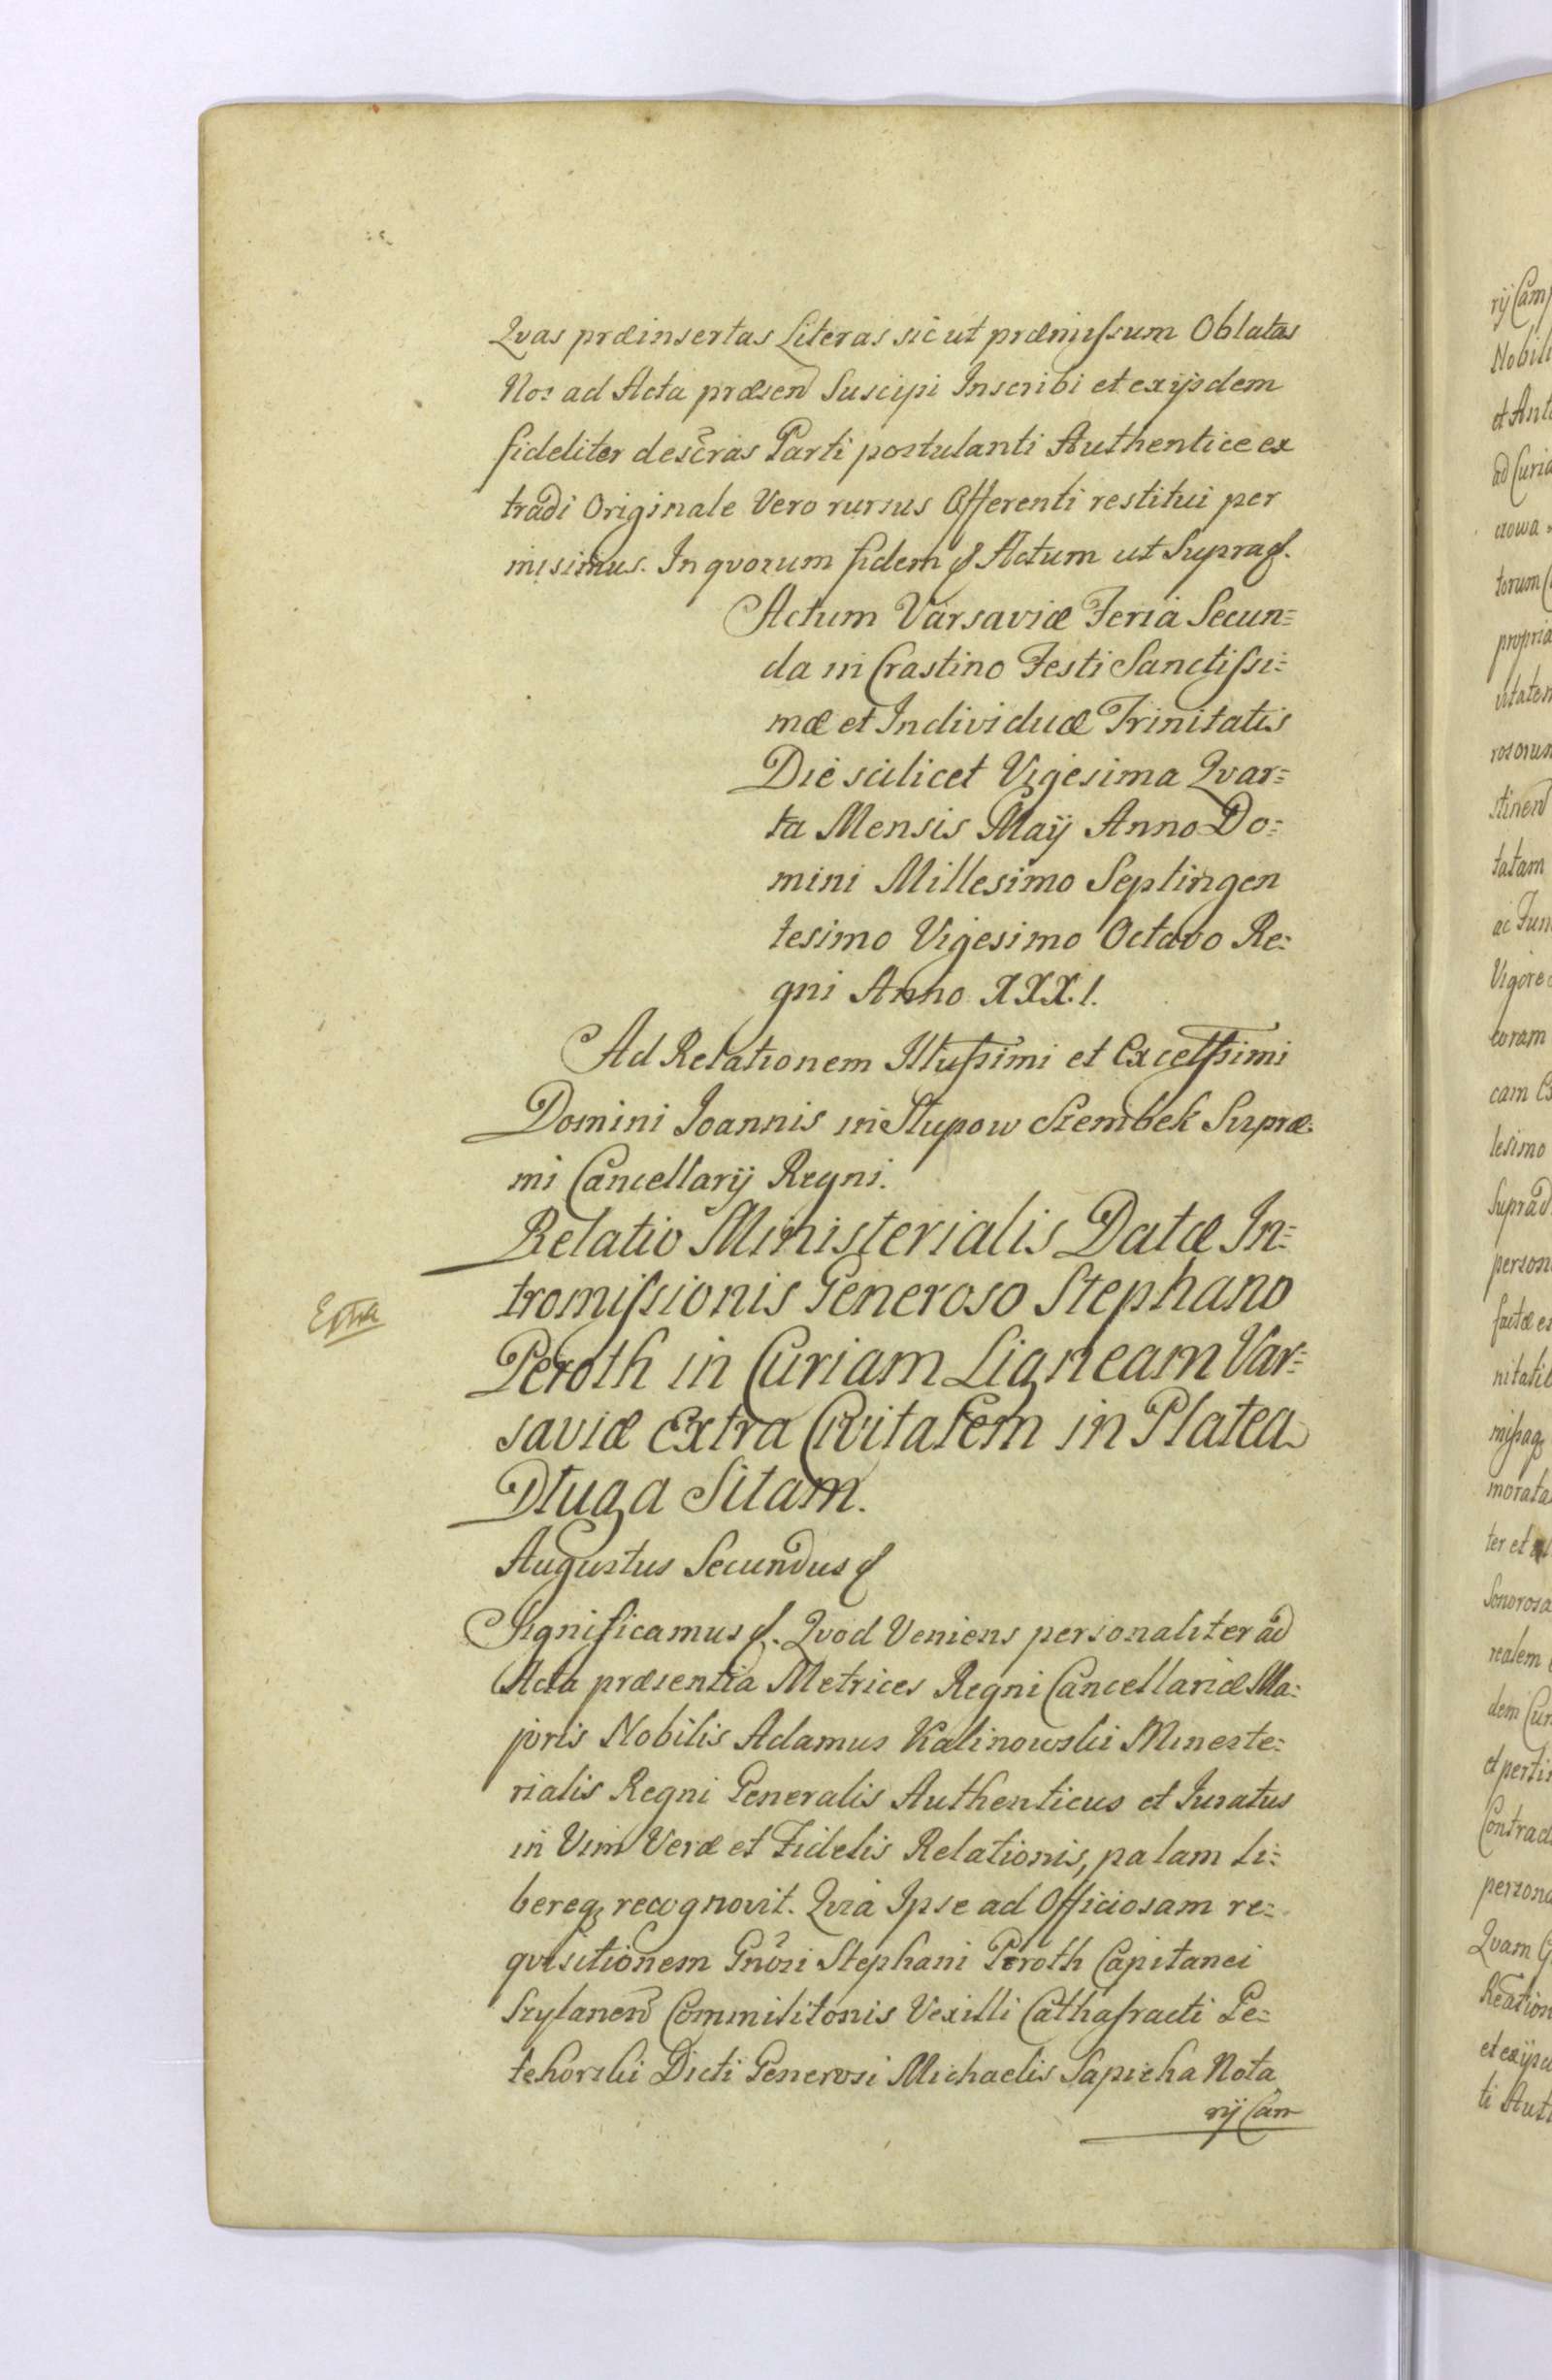 Qvas præinsertas Literas sic ut præmissum Oblatas
Nos ad Acta præsen Suscipi Inscribi et exijsdem
fideliter descras Parti postulanti Authentice ex
tradi Originale Vero rursus Offerenti restitui per
misimus. In qvorum fidem Actum ut Supra
Actum Varsaviæ Feria Secun=
da in Crastino Festi Sanctissi=
mæ et Individuæ Trinitatis
Die scilicet Vigesima Qvar=
ta Mensis Maij Anno Do=
mini Millesimo Septingen
tesimo Vigesimo Octavo Re=
gni Anno XXX.I.
Ad Relationem Illussimi et Excelssimi
Domini Joannis in Słupow Szembek Supræ=
mi Cancellarij Regni.
Relatio Ministerialis Datæ In=
tromissionis Generoso Stephano
Peroth in Curiam Ligneam Var=
saviæ Extra Civitatem in Platea
Długa Sitam.
Augustus Secundus
Significamus Qvod Veniens personaliter ad
Acta præsentia Metrices Regni Cancellariæ Ma=
joris Nobilis Adamus Kalinowski Mineste=
rialis Regni Generalis Authenticus et Juratus
in Vim Veræ et Fidelis Relationis, palam Li=
bereq recognovit. Qvia Ipse ad Officiosam re=
qvisitionem Gnosi Stephani Peroth Capitanei
Szylanen Commilitonis Vexilli Cathafracti Pe=
tehorski Dicti Generosi Michaelis Sapieha Nota
rij Cam
rij Cam
Nobili
et Ant
ad Curia
torum
propria
tatam
Vigore
coram
cam
lesimo
person
morata
ter et
Sonorosa
realem
dem Cur
et perti
Contrad
persona
Qvam